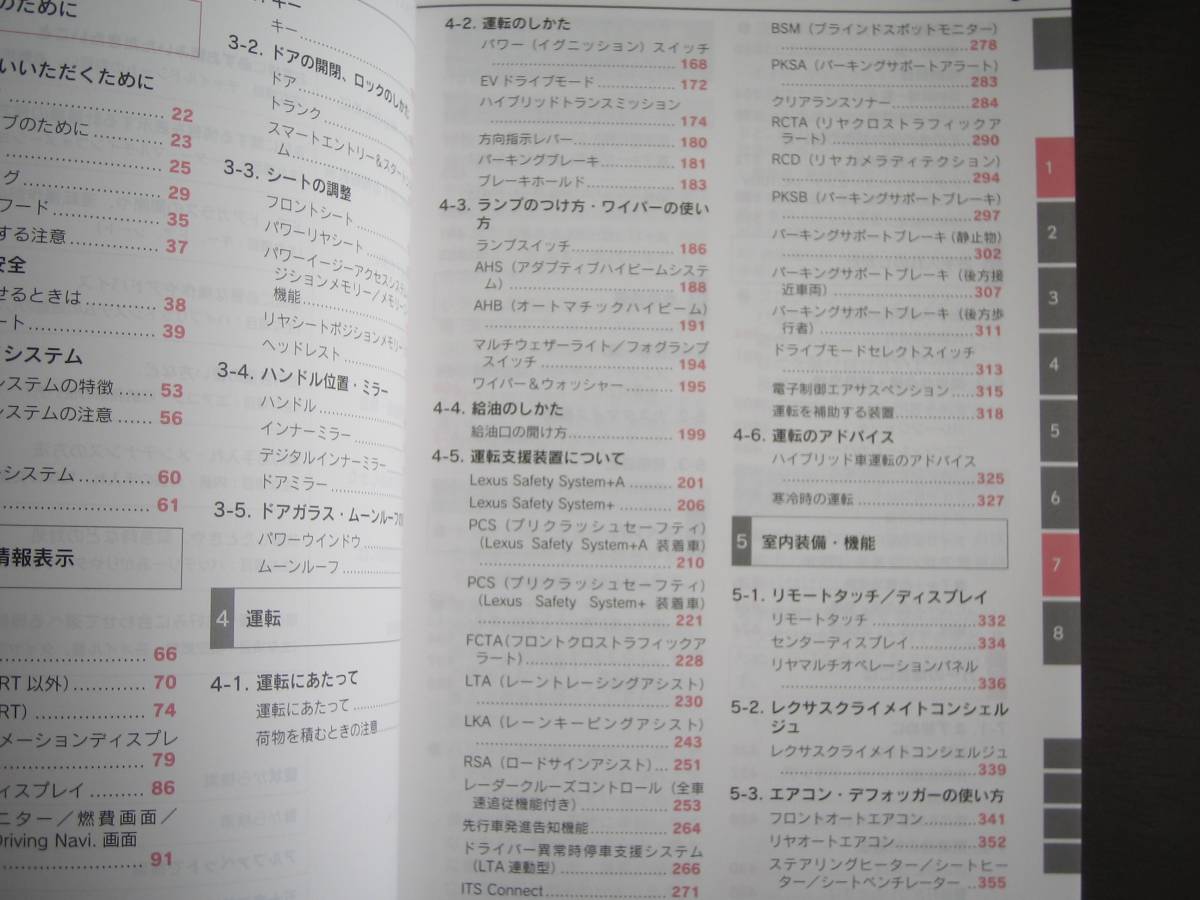 のために
いいただくために
22
ブのために 23
25
グ 29
フード 35
する注意 37
安全
せるときは 38
ート 39
システム
システムの特徴 53
システムの注意 56
システム 60
61
情報表示
66
RT 以外) 70
RT) 74
メーションディスプレ
79
ィスプレイ 86
ニター／燃費画面／
Driving Navi. 画面
91
キー
キー
3-2. ドアの開閉、ロックのしかた
ドア
トランク
スマートエントリー＆スタート
ム
3-3. シートの調整
フロントシート
パワーリヤシート
パワーイージーアクセスシステム
ジションメモリー／メモリー
機能
リヤシートポジションメモリー
ヘッドレスト
3-4. ハンドル位置・ミラー
ハンドル
インナーミラー
デジタルインナーミラー
ドアミラー
3-5. ドアガラス・ムーンルーフの
パワーウインドウ
ムーンルーフ
4 運転
4-1. 運転にあたって
運転にあたって
荷物を積むときの注意
4-2. 運転のしかた
パワー（イグニッション）スイッチ
168
EVドライブモード 172
ハイブリッドトランスミッション
174
方向指示レバー 180
パーキングブレーキ 181
ブレーキホールド 183
4-3. ランプのつけ方・ワイパーの使い
方
ランプスイッチ 186
AHS（アダプティブハイビームシステ
ム） 188
AHB（オートマチックハイビーム）
191
マルチウェザーライト／フォグランプ
スイッチ 194
ワイパー＆ウォッシャー 195
4-4. 給油のしかた
給油口の開け方 199
4-5. 運転支援装置について
Lexus Safety System+A 201
Lexus Safety System+ 206
PCS（プリクラッシュセーフティ）
（Lexus Safety System+A 装着車）
210
PCS（プリクラッシュセーフティ）
（Lexus Safety System+ 装着車）
221
FCTA（フロントクロストラフィックア
ラート） 228
LTA（レーントレーシングアシスト）
230
LKA（レーンキーピングアシスト）
243
RSA（ロードサインアシスト） 251
レーダークルーズコントロール（全車
速追従機能付き） 253
先行車発進告知機能 264
ドライバー異常時停車支援システム
（LTA 連動型） 266
ITS Connect 271
BSM（ブラインドスポットモニター）
278
PKSA（パーキングサポートアラート）
283
クリアランスソナー 284
RCTA（リヤクロストラフィックア
ラート） 290
RCD（リヤカメラディテクション）
294
PKSB（パーキングサポートブレーキ）
297
パーキングサポートブレーキ（静止物）
302
パーキングサポートブレーキ（後方接
近車両） 307
パーキングサポートブレーキ（後方歩
行者） 311
ドライブモードセレクトスイッチ
313
電子制御エアサスペンション 315
運転を補助する装置 318
4-6. 運転のアドバイス
ハイブリッド車運転のアドバイス
325
寒冷時の運転 327
5 室内装備・機能
5-1. リモートタッチ／ディスプレイ
リモートタッチ 332
センターディスプレイ 334
リヤマルチオペレーションパネル
336
5-2. レクサスクライメイトコンシェル
ジュ
レクサスクライメイトコンシェルジュ
339
5-3. エアコン・デフォッガーの使い方
フロントオートエアコン 341
リヤオートエアコン 352
ステアリングヒーター／シートヒー
ター／シートベンチレーター 355
1
2
3
4
5
6
7
8